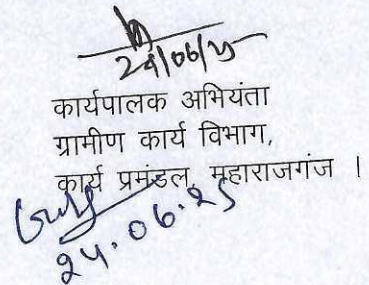 24/06/25
कार्यपालक अभियंता
ग्रामीण कार्य विभाग,
कार्य प्रमंडल, महाराजगंज ।
24.06.25